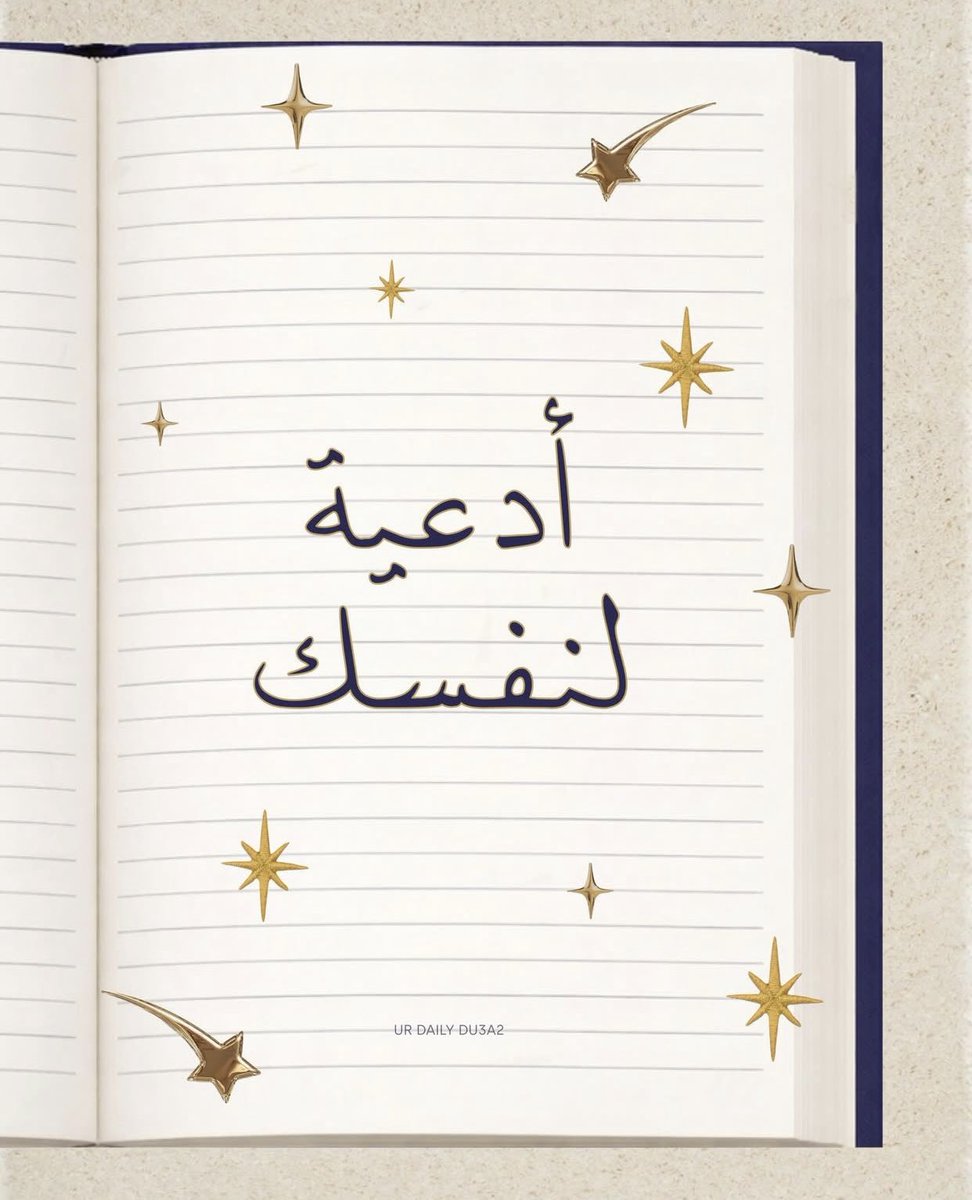 أدعية
لنفسك
UR DAILY DU3A2